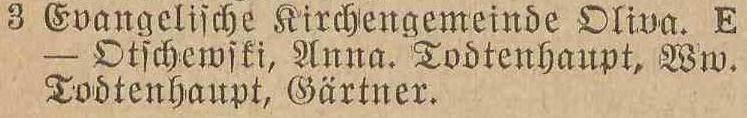 3 Evangelische Kirchengemeinde Oliva. E
— Otschewski, Anna. Todtenhaupt, Ww.
Todtenhaupt, Gärtner.